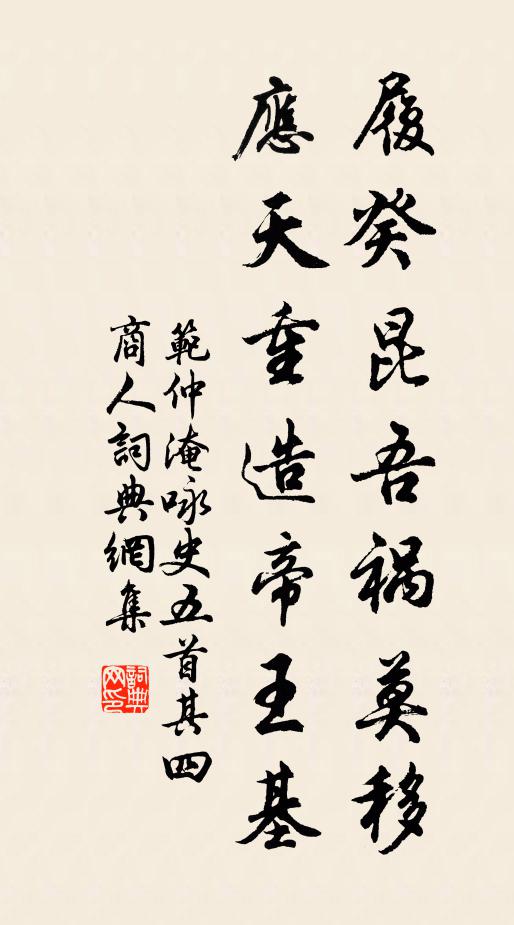 履癸昆吾禍莫移
應天重造帝王基
範仲淹咏史五首其四
商人詞典網集
詞典網印